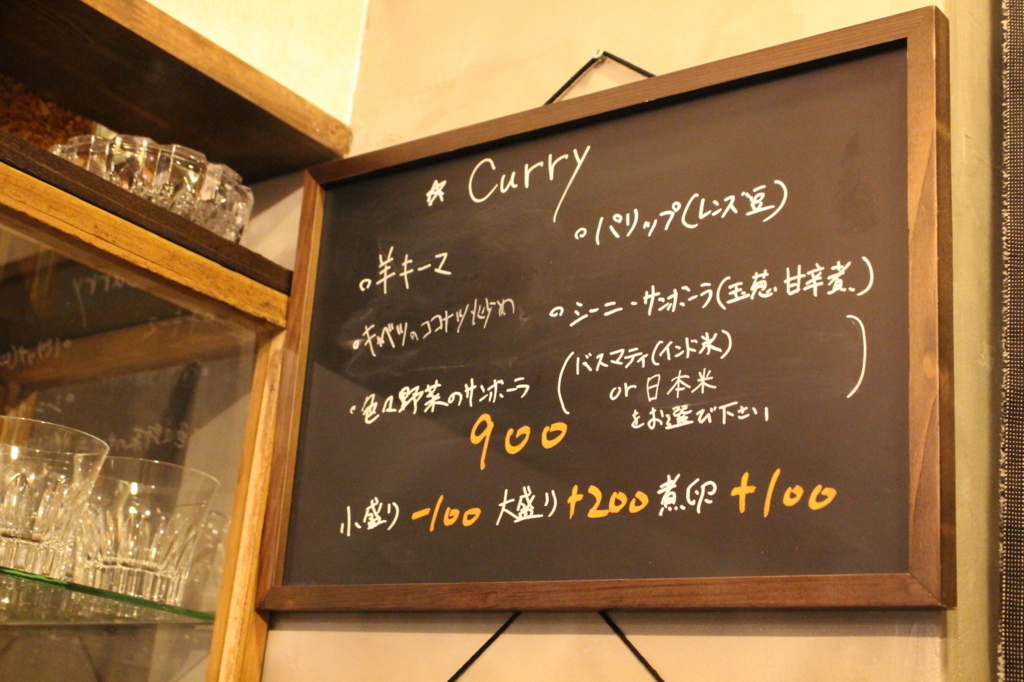 ☆ Curry
○羊キーマ
○パリップ(レンズ豆)
○キャベツのココナツ炒め
○シーニ・サンボーラ(玉葱・甘辛煮)
○色々野菜のサンボーラ
(バスマティ(インド米)
or 日本米
をお選び下さい)
900
小盛り -100 大盛り +200 煮卵 +100